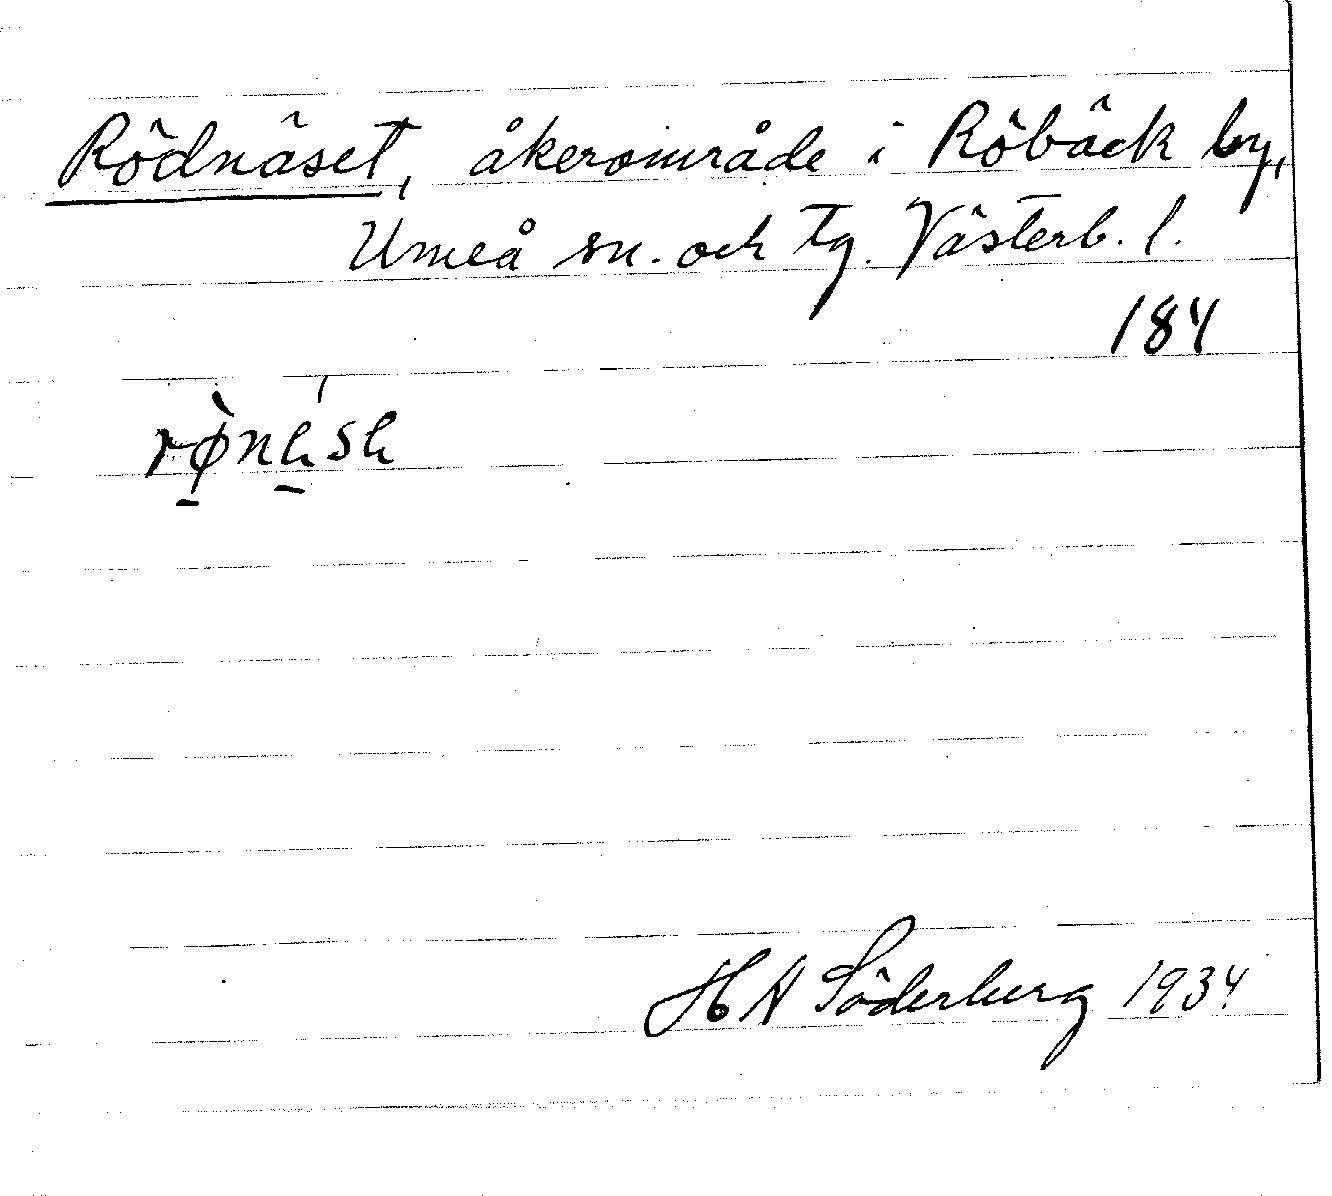 Rödnäset, åkerområde i Röbäck by,
Umeå sn. och tg. Västerb. l.
184
HA Söderberg 1934